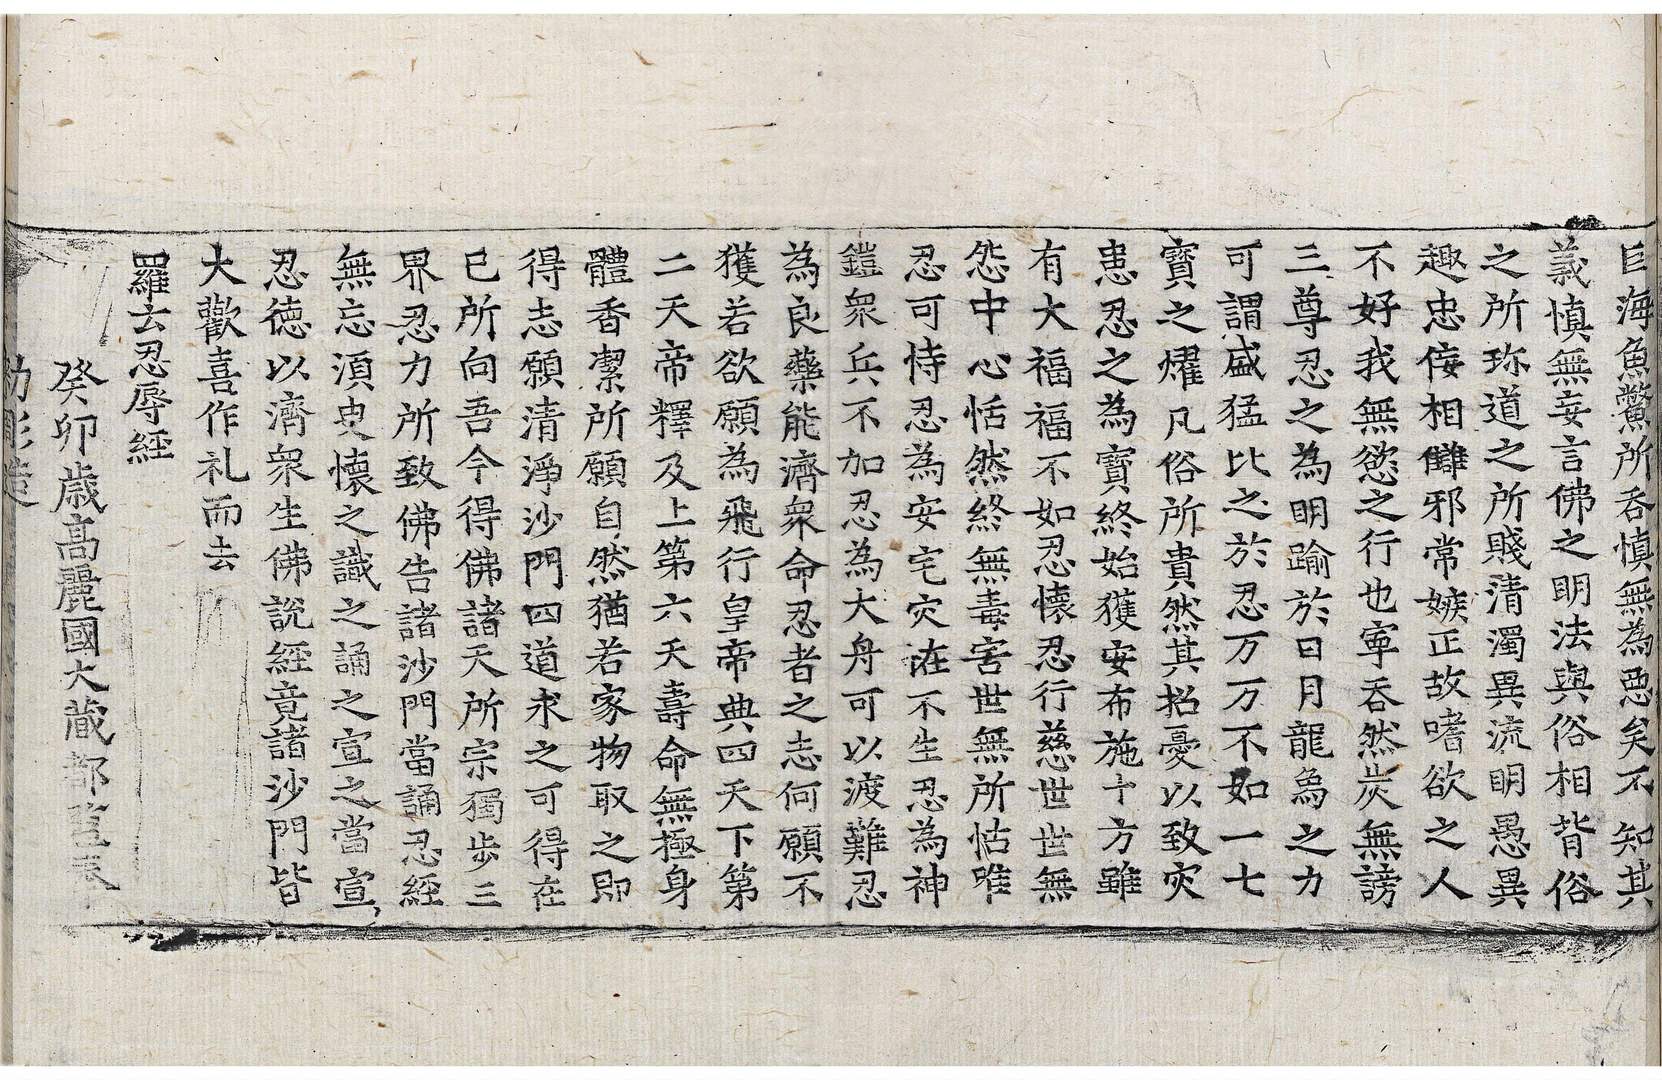 巨海魚鱉所吞慎無為惡矣不知其
義慎無妄言佛之明法與俗相背俗
之所珎道之所賤清濁異流明愚異
趣忠侫相讎邪常嫉正故嗜欲之人
不好我無慾之行也寧吞然炭無謗
三尊忍之為明踰於日月龍烏之力
可謂盛猛比之於忍万万不如一七
寶之燿凡俗所貴然其招憂以致灾
患忍之為寶終始獲安布施十方雖
有大福福不如忍懷忍行慈世世無
怨中心恬然終無毒害世無所怙唯
忍可恃忍為安宅灾恠不生忍為神
鎧衆兵不加忍為大舟可以渡難忍
為良藥能濟衆命忍者之志何願不
獲若欲願為飛行皇帝典四天下第
二天帝釋及上第六天壽命無極身
體香潔所願自然猶若家物取之即
得志願清淨沙門四道求之可得在
已所向吾今得佛諸天所宗獨步三
界忍力所致佛告諸沙門當誦忍經
無忘湏臾懷之識之誦之宣之當宣
忍德以濟衆生佛說經竟諸沙門皆
大歡喜作礼而去
羅云忍辱經
癸卯歳髙麗國大蔵都監奉
勑彫造